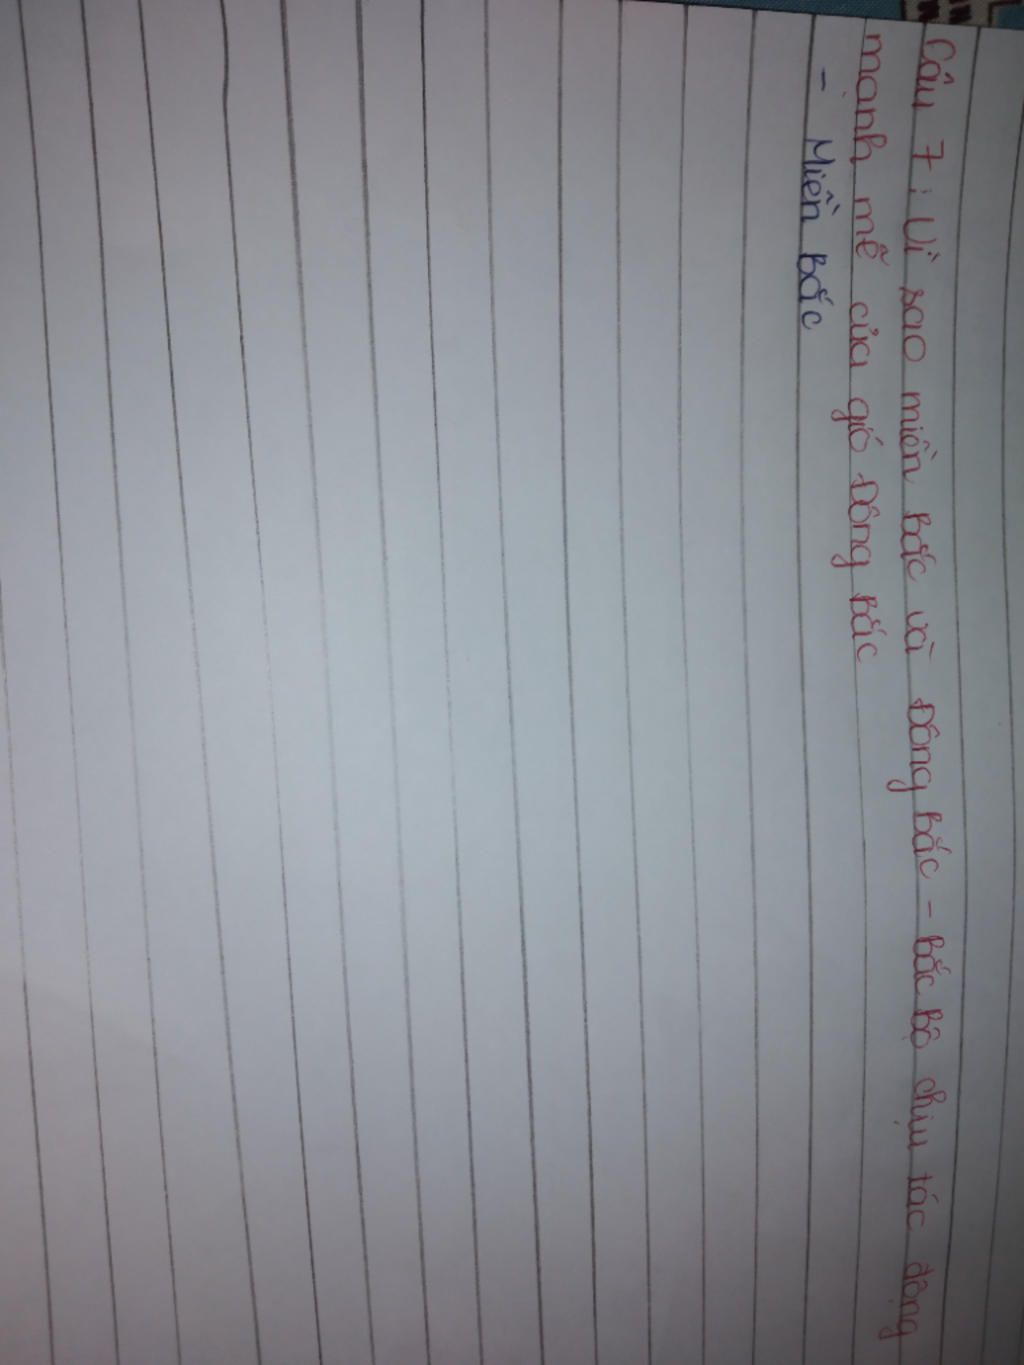 Câu 7: Vì sao miền Bắc và Đông Bắc - Bắc Bộ chịu tác động
mạnh mẽ của gió Đông Bắc
- Miền Bắc